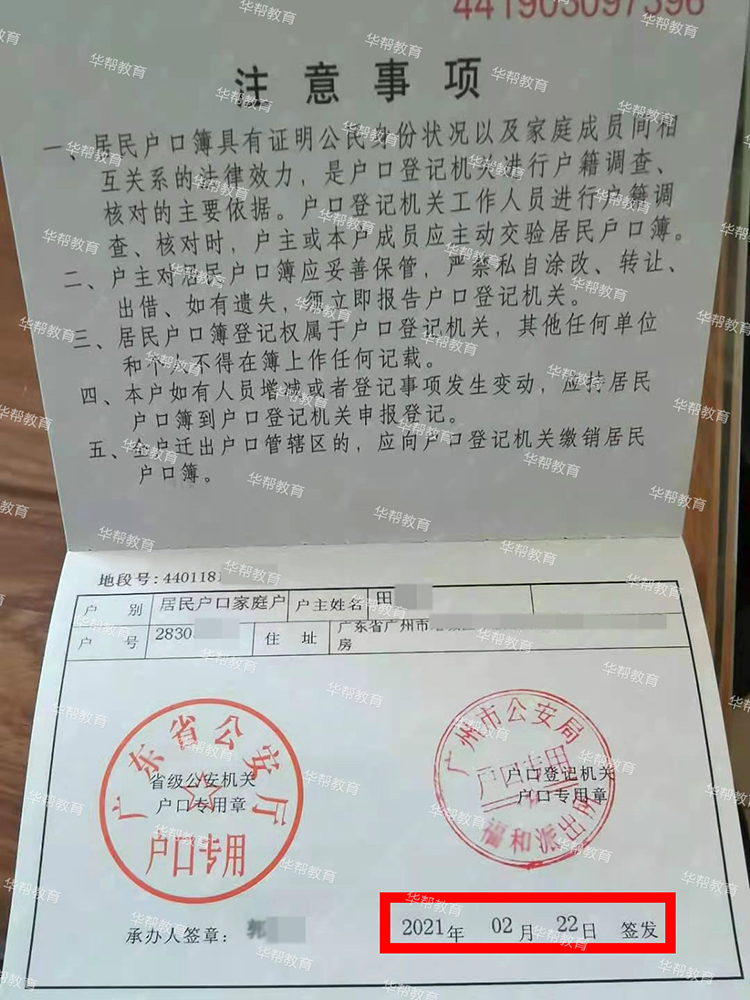 441903097396
注意事项
一、居民户口簿具有证明公民身份状况以及家庭成员间相
互关系的法律效力，是户口登记机关进行户籍调查、
核对的主要依据。户口登记机关工作人员进行户籍调
查、核对时，户主或本户成员应主动交验居民户口簿。
二、户主对居民户口簿应妥善保管，严禁私自涂改、转让、
出借、如有遗失，须立即报告户口登记机关。
三、居民户口簿登记权属于户口登记机关，其他任何单位
和个人不得在簿上作任何记载。
四、本户如有人员增减或者登记事项发生变动，应持居民
户口簿到户口登记机关申报登记。
五、全户迁出户口管辖区的，应向户口登记机关缴销居民
户口簿。
地段号:4401181
户 别 居民户口家庭户 户主姓名 田
户 号 2830 住 址 广东省广州市
房
广东省公安厅
省级公安机关
户口专用章
户口专用
广州市公安局
户口专用
户口登记机关
户口专用章
福和派出所
承办人签章: 郭
2021年 02月 22日 签发
华帮教育